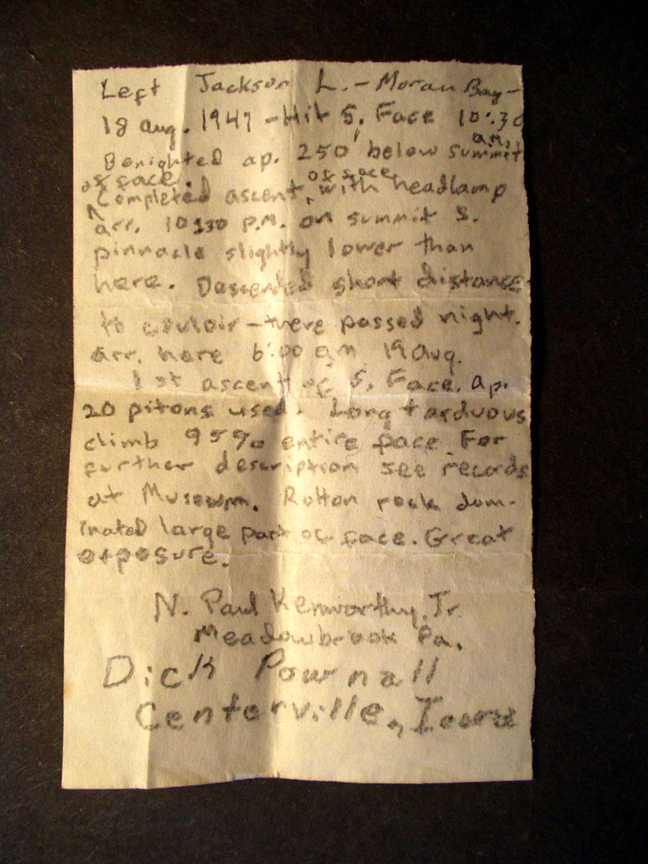 Left Jackson L. – Moran Bay –
18 aug. 1947 – Hit S. Face 10:30
a.m.
Benighted ap. 250' below summit
of face. of face
Completed ascent, with headlamp
arr. 10:30 P.M. on summit S.
pinnacle slightly lower than
here. Descended short distance
to couloir – there passed night.
arr. here 6:00 am 19 aug.
1st ascent of S. Face. ap.
20 pitons used. Long + arduous
climb 95% entire face. For
further description see records
at Museum. Rotton rock dom-
inated large part of face. Great
exposure.
N. Paul Kenworthy, Jr
Meadowbrook Pa.
Dick Pownall
Centerville, Iowa